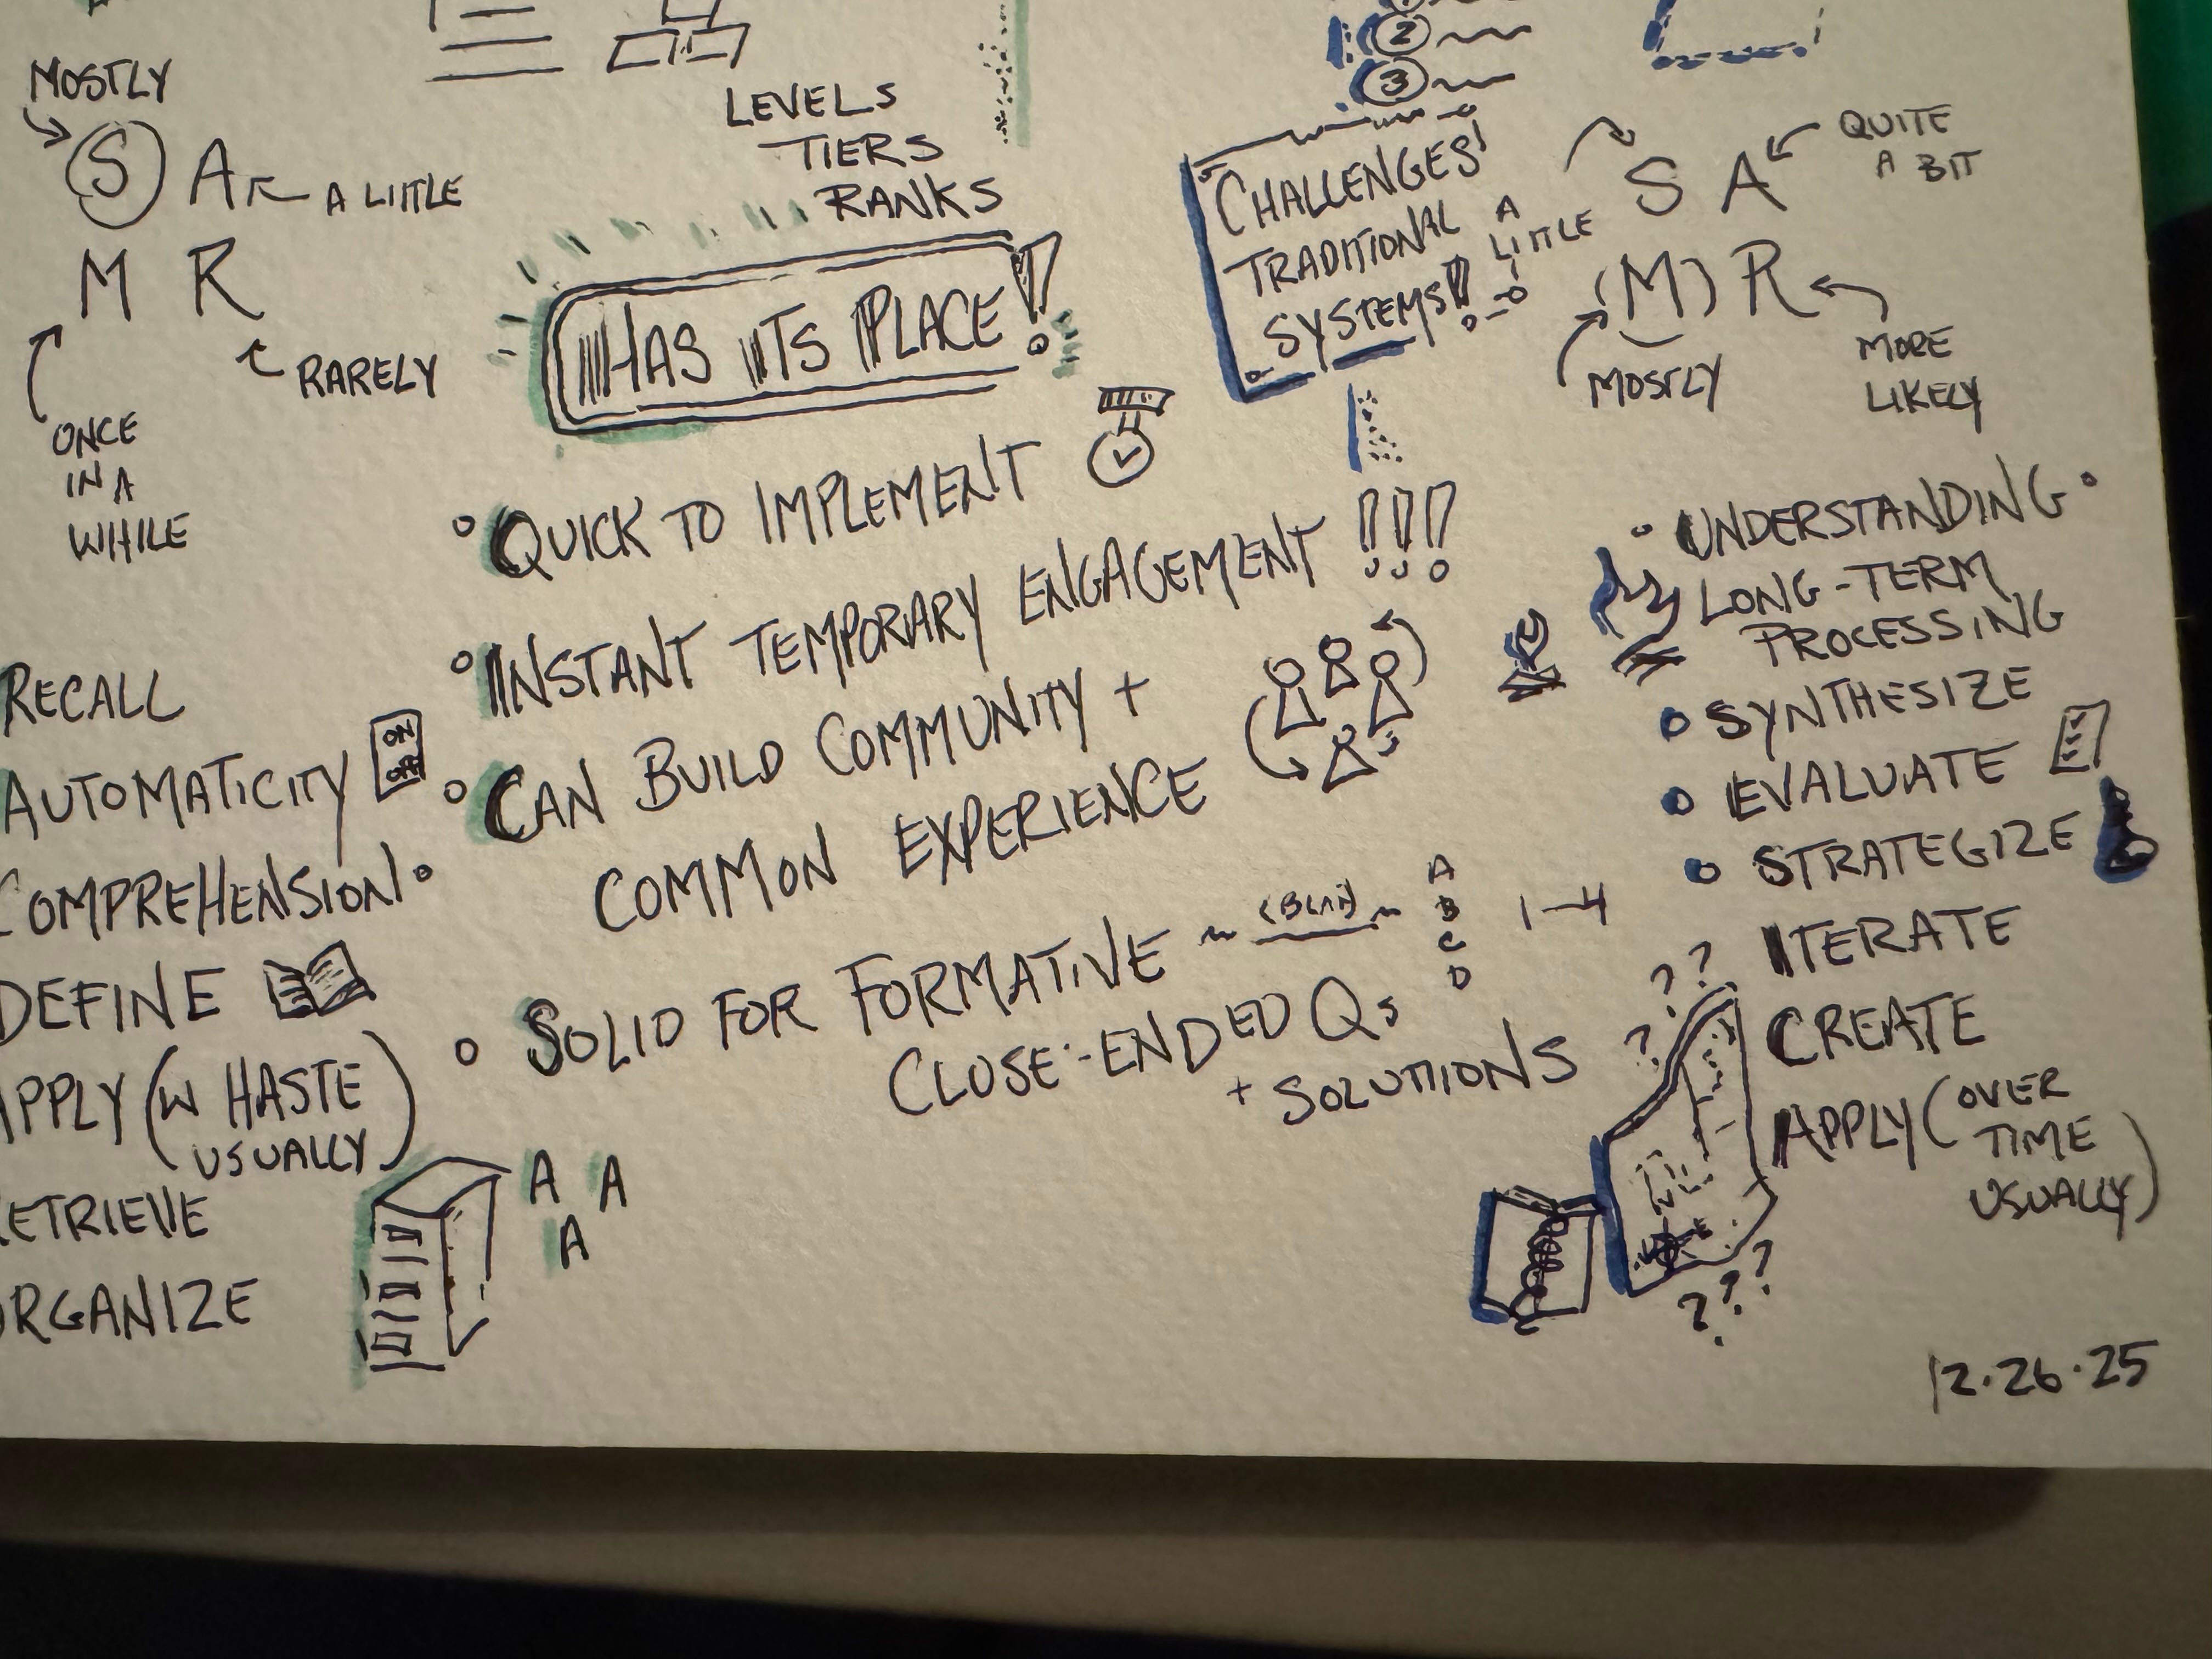 MOSTLY
S A A LITTLE
M R
RARELY
ONCE
IN A
WHILE
RECALL
AUTOMATICITY
ON
OFF
COMPREHENSION
DEFINE
APPLY (W HASTE
USUALLY)
RETRIEVE
ORGANIZE
A A
A
LEVELS
TIERS
RANKS
HAS ITS PLACE!
QUICK TO IMPLEMENT
INSTANT TEMPORARY ENGAGEMENT !!!
CAN BUILD COMMUNITY +
COMMON EXPERIENCE
SOLID FOR FORMATIVE
A
B
C
D
1-4
CLOSE-ENDED Qs
+ SOLUTIONS
2
3
CHALLENGES
TRADITIONAL
SYSTEMS!!
A
LITTLE
S A
QUITE
A BIT
(M) R
MOSTLY
MORE
LIKELY
UNDERSTANDING
LONG-TERM
PROCESSING
SYNTHESIZE
EVALUATE
STRATEGIZE
ITERATE
CREATE
APPLY (OVER
TIME
USUALLY)
? ?
?
? ? ?
12.26.25